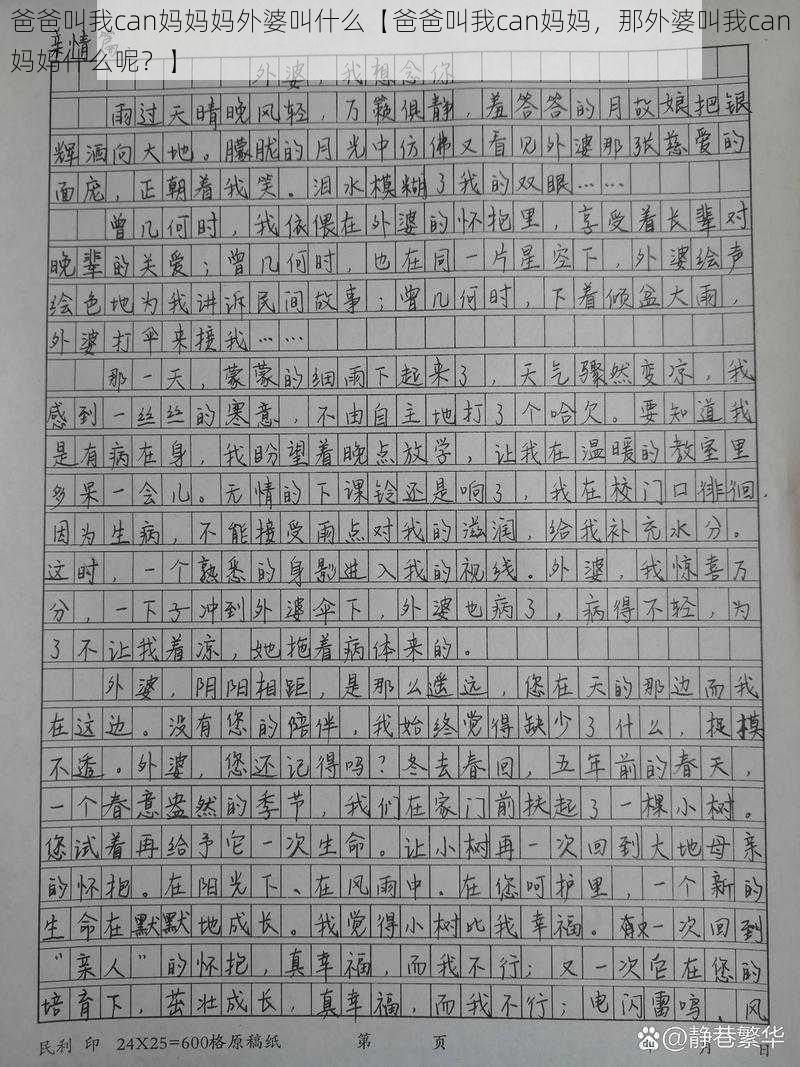 爸爸叫我can妈妈妈外婆叫什么【爸爸叫我can妈妈，那外婆叫我can
妈妈什么呢？】
亲情篇
外婆，我想念你
雨过天晴晚风轻，万籁俱静，羞答答的月故娘把银
辉洒向大地。朦胧的月光中仿佛又看见外婆那张慈爱的
面庞，正朝着我笑。泪水模糊了我的双眼……
曾几何时，我依偎在外婆的怀抱里，享受着长辈对
晚辈的关爱；曾几何时，也在同一片星空下，外婆绘声
绘色地为我讲诉民间故事；曾几何时，下着倾盆大雨，
外婆打伞来接我……
那一天，蒙蒙的细雨下起来了，天气骤然变凉，我
感到一丝丝的寒意，不由自主地打了个哈欠。要知道我
是有病在身，我盼望着晚点放学，让我在温暖的教室里
多呆一会儿。无情的下课铃还是响了，我在校门口徘徊，
因为生病，不能接受雨点对我的滋润，给我补充水分。
这时，一个熟悉的身影进入我的视线。外婆，我惊喜万
分，一下子冲到外婆伞下，外婆也病了，病得不轻，为
了不让我着凉，她拖着病体来的。
外婆，阴阳相距，是那么遥远，您在天的那边而我
在这边。没有您的陪伴，我始终觉得缺少了什么，捉摸
不透。外婆，您还记得吗？冬去春回，五年前的春天，
一个春意盎然的季节，我们在家门前扶起了一棵小树。
您试着再给予它一次生命。让小树再一次回到大地母亲
的怀抱。在阳光下、在风雨中、在您呵护里，一个新的
生命在默默地成长。我觉得小树比我幸福。一次回到
“亲人”的怀抱，真幸福，而我不行；又一次它在您的
培育下，茁壮成长，真幸福，而我不行；电闪雷鸣、风
民利 印 24X25=600格原稿纸 第 页 年 月 日
静巷繁华